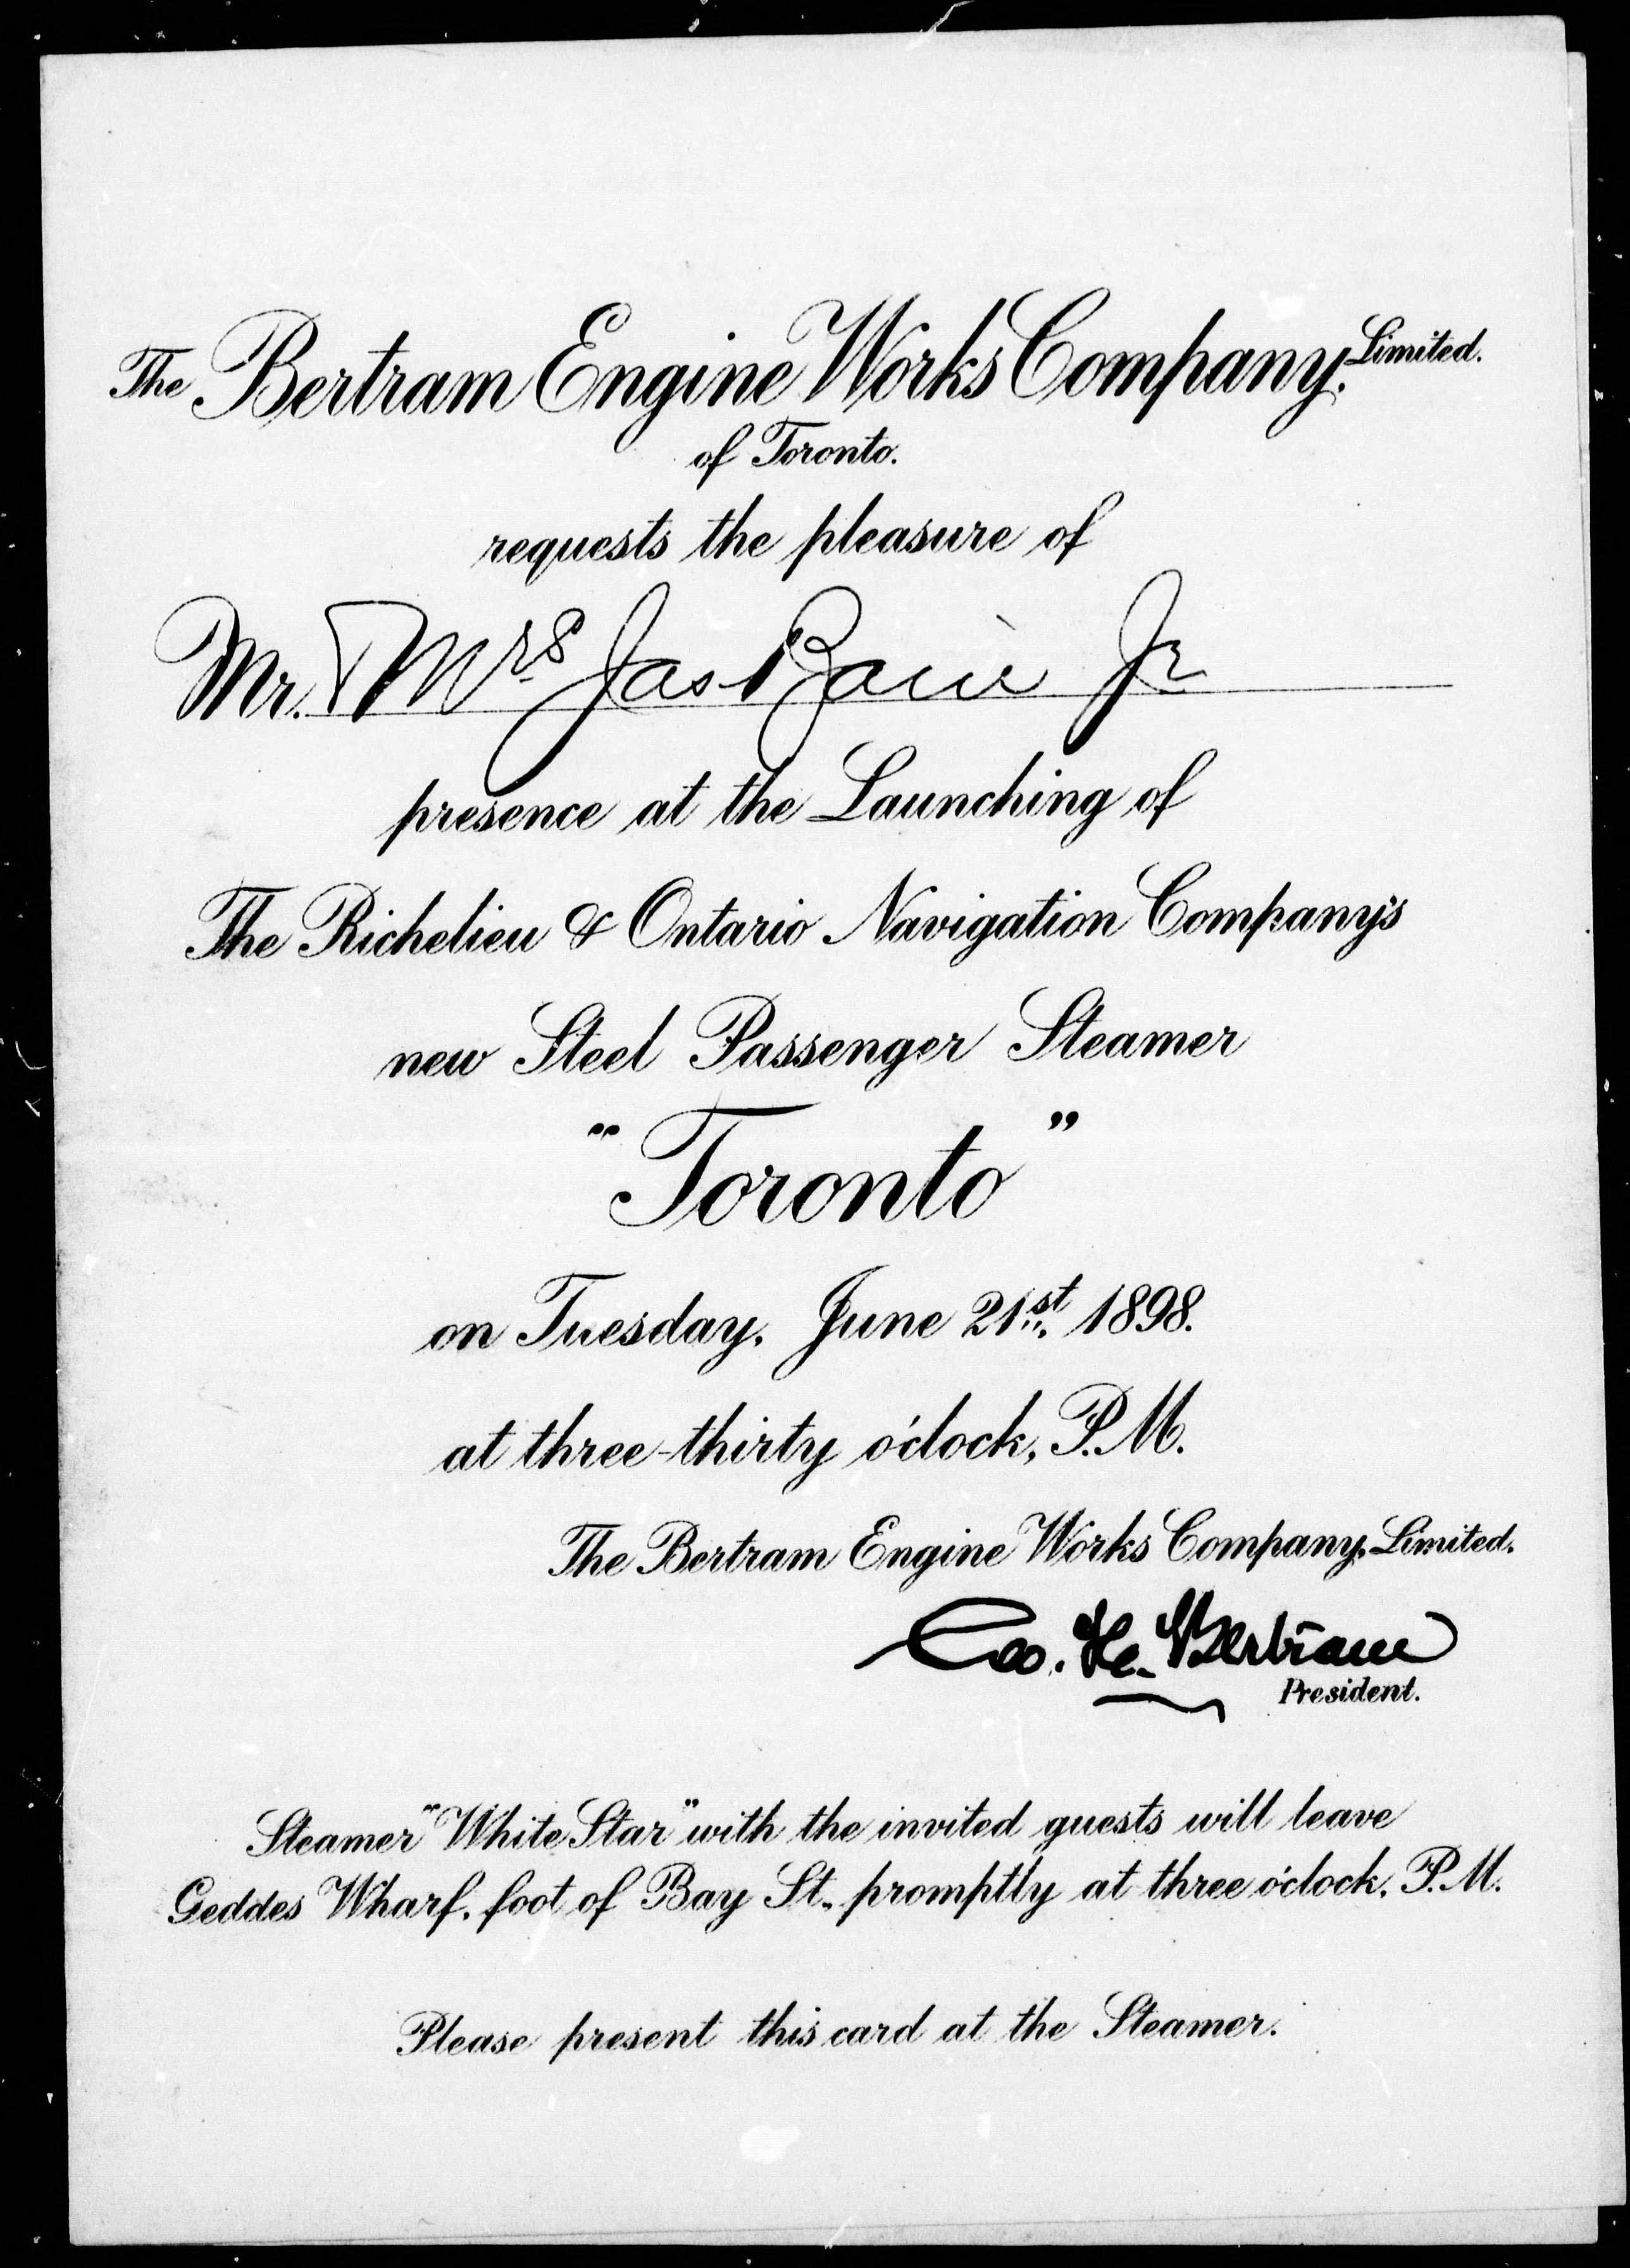 The Bertram Engine Works Company, Limited.
of Toronto.
requests the pleasure of
Mr. & Mrs Jas Bain Jr
presence at the Launching of
The Richelieu & Ontario Navigation Company's
new Steel Passenger Steamer
"Toronto"
on Tuesday, June 21st 1898.
at three-thirty o'clock, P.M.
The Bertram Engine Works Company, Limited.
Geo. H. Bertram
President.
Steamer "White Star" with the invited guests will leave
Geddes Wharf, foot of Bay St., promptly at three o'clock, P.M.
Please present this card at the Steamer.